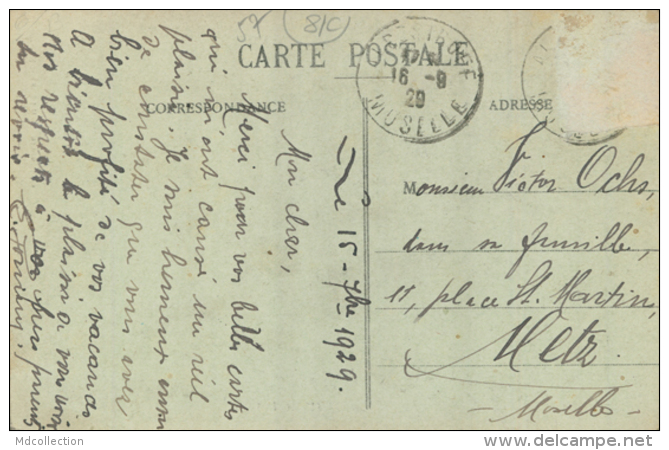 57 (8/C)
CARTE POSTALE
16 - 9
29
MOSELLE
CORRESPONDANCE
ADRESSE
le 15 - 7bre 1929.
Mon cher,
Merci pour vos belles cartes
qui m'ont causé un réel
plaisir. Je suis heureux aussi
de constater que vous avez
bien profité de vos vacances
A bientôt le plaisir de vous voir
Mes respects à vos chers parents
Au revoir.
Monsieur Victor Ochs,
dans sa famille,
11, place St. Martin,
Metz.
- Moselle -
Mdcollection
delcampe.net